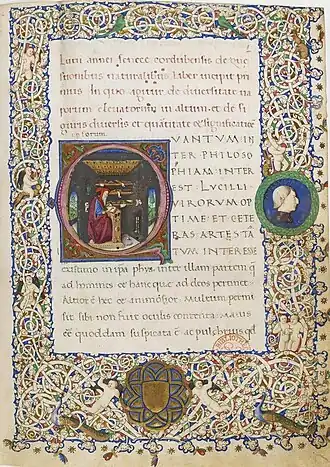 Lucii annei Senece cordubensis de que
stionibus naturalibus liber incipit pri
mus In quo agitur de diversitate va
porum elevatorum in altum et de fi
guris diversis et quantitate & significatione
ipsorum.
QVANTVM IN
TER PHILOSO
PHIAM INTER
EST LVCILLI
VIRORVM OP
TIME ET CETE
RAS ARTES TA
TVM INTERESSE
existimo in ipa phya inter illam partem q̄
ad homines et hanc que ad deos pertinet
Altior ē hec et animosior Multum permi
sit sibi non fuit oculis contenta Maius
eē quoddam suspicata ē ac pulchrius qd